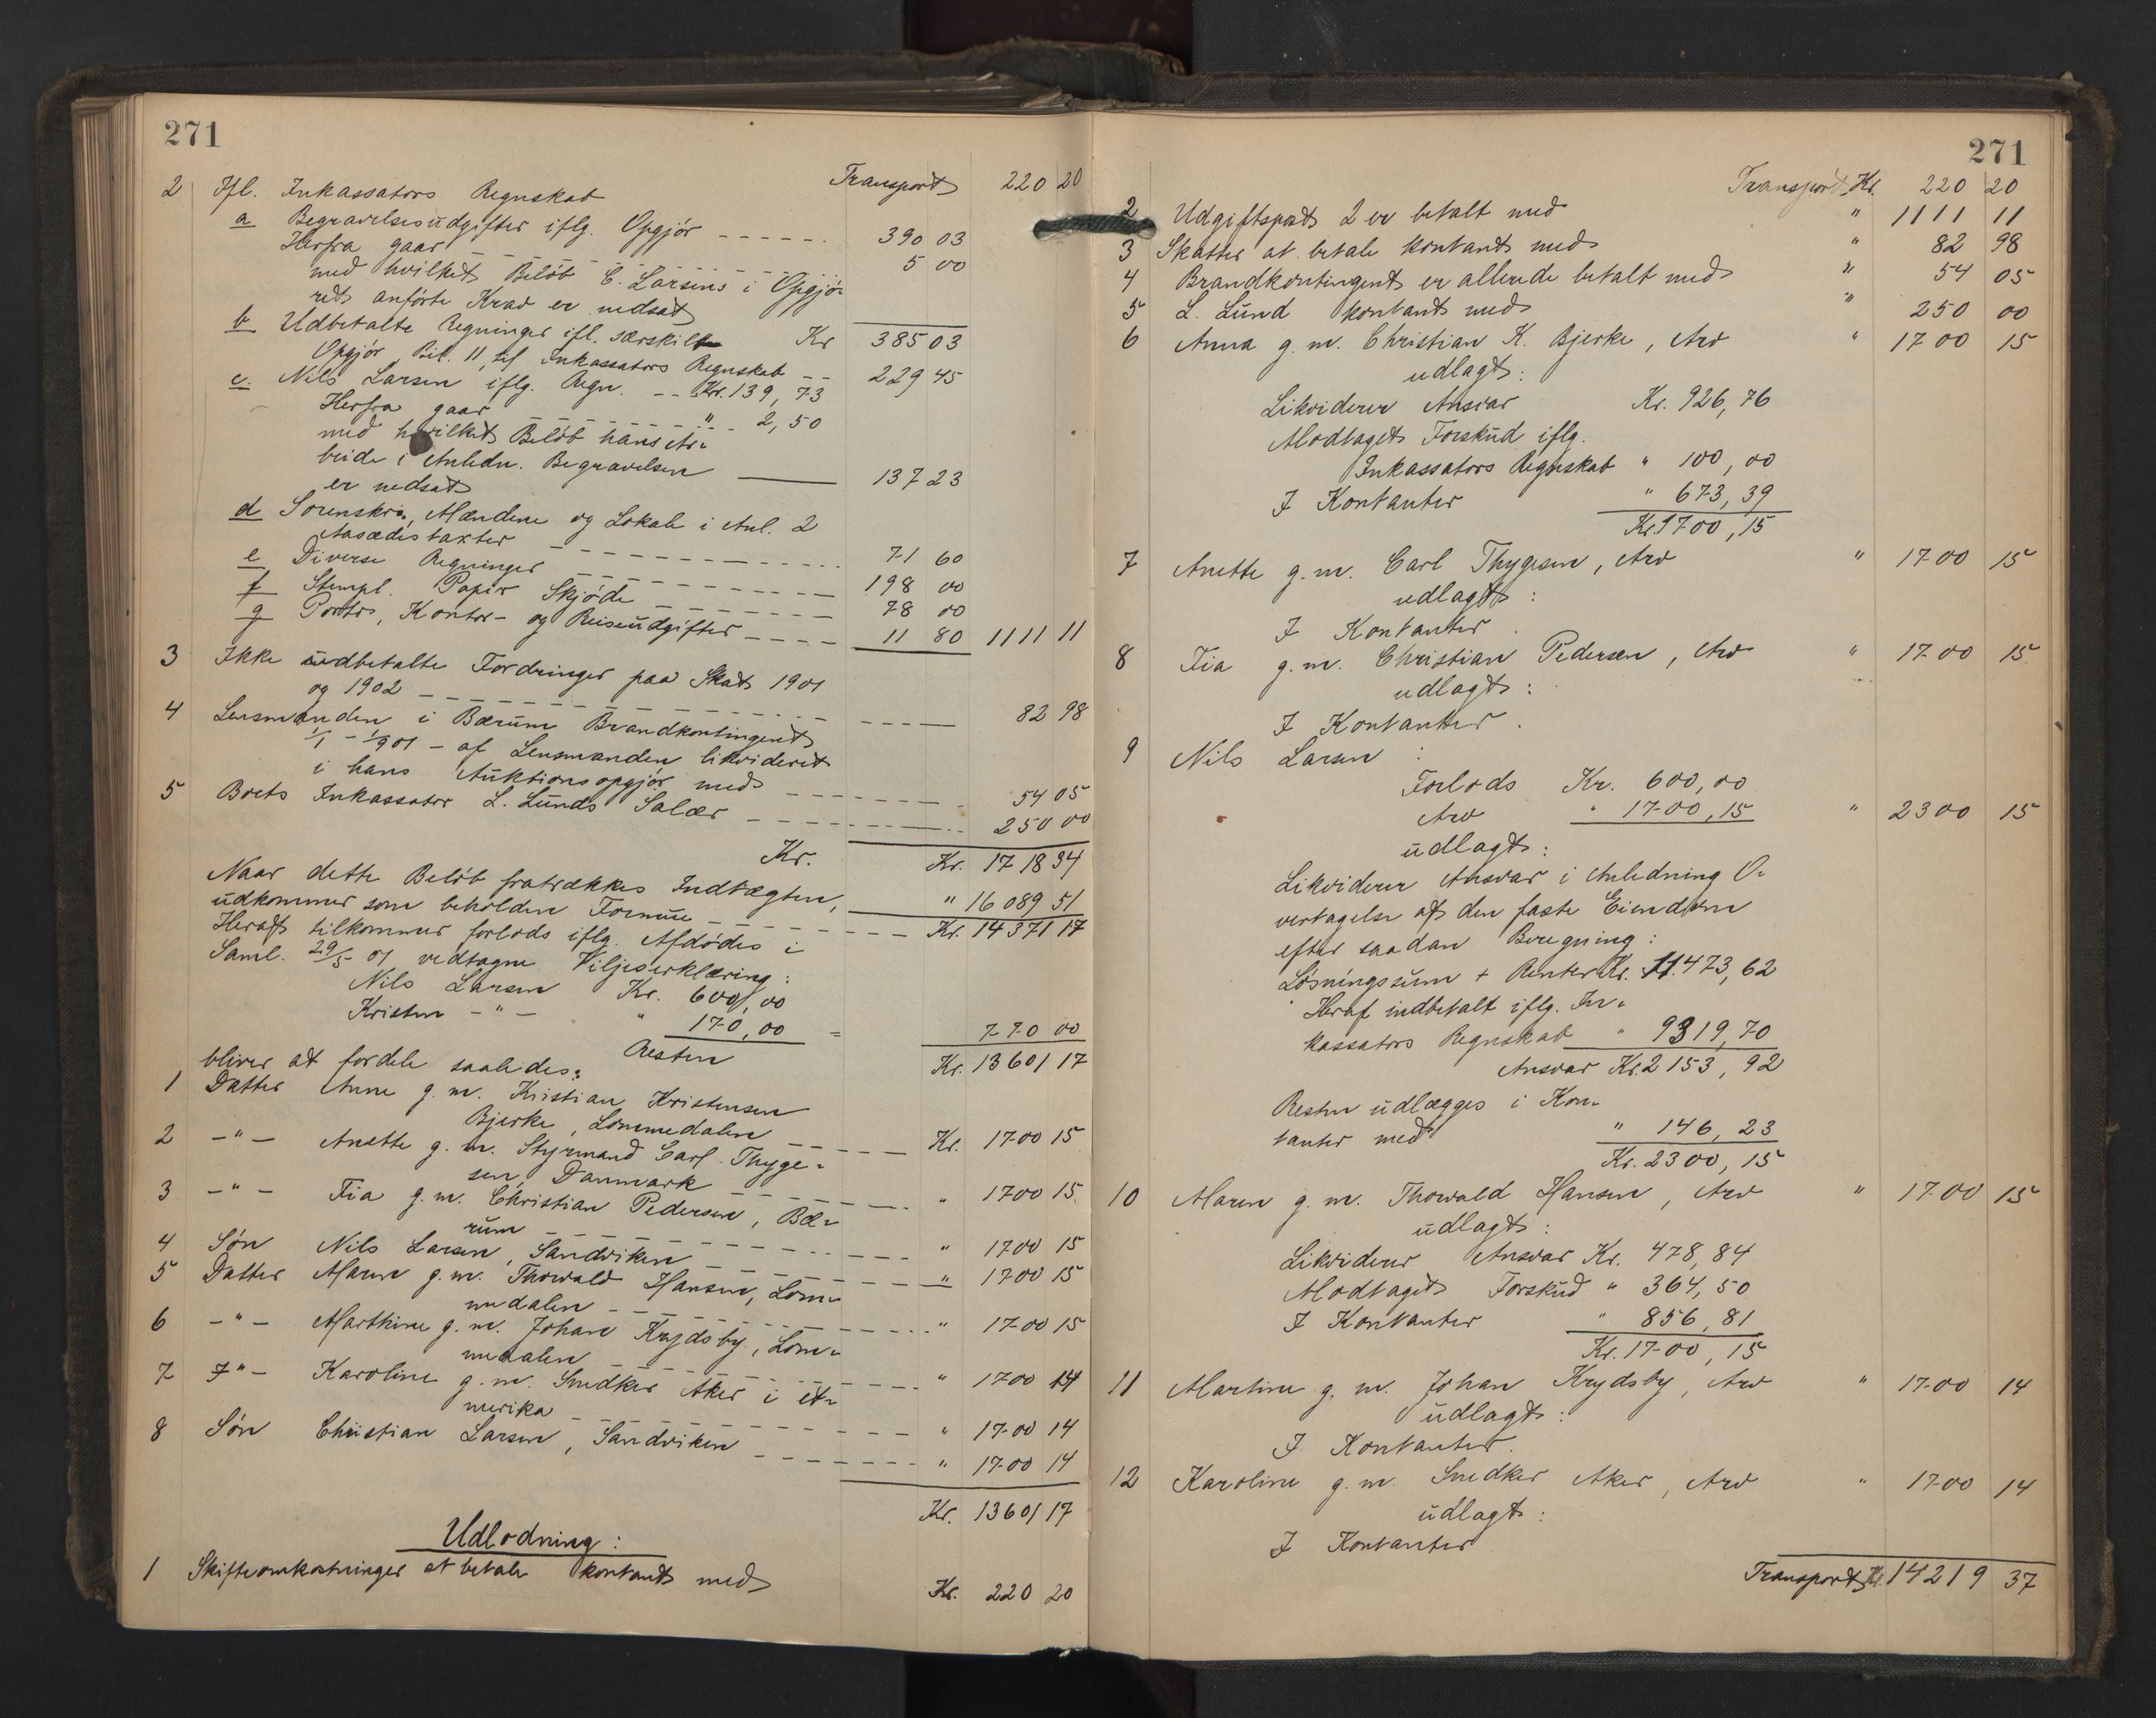 271
Transport 220 20
2 Ifl. Inkassators Regnskab
a Begravelsesudgifter iflg. Opgjør 390 03
Herfra gaar 5 00
med hvilket Beløb C. Larsens i Opgjø-
ret anførte Krav er nedsat
Kr 385 03
b Udbetalte Regninger ifl. særskilt
Opgjør, Bil. 11, til Inkassators Regnskab 229 45
c. Nils Larsen iflg. Regn. Kr. 139,73
Herfra gaar " 2,50
med hvilket Beløb hans Ar-
beide i Anledn. Begravelsen
er nedsat 137 23
d Sorenskr., Mændene og Lokale i Anl. 2
Aasædestaxter 71 60
e Diverse Regninger 198 00
f Stempl. Papir Skjøde 78 00
g Porto, Kontor- og Reiseudgifter 11 80 1111 11
3 Ikke udbetalte Fordringer paa Skat 1901
og 1902 82 98
4 Lensmanden i Bærum Brandkontingent
1/1 - 1/901 - af Lensmanden likvideret
i hans Auktionsopgjør med 54 05
5 Boets Inkassator L. Lunds Salær 250 00
Kr. Kr. 1718 34
Naar dette Beløb fratrækkes Indtægten, " 16 089 51
udkommer som beholden Formue Kr. 14371 17
Heraf tilkommer forlods iflg. Afdødes i
Saml. 29/5 01 vedtagne Viljeserklæring:
Nils Larsen Kr. 600,00
Kristen - " - " 170,00 = 770 00
Resten Kr. 13601 17
bliver at fordele saaledes:
1 Datter Anne g. m. Kristian Kristensen
Bjerke, Lommedalen Kr. 1700 15
2 - " - Anette g. m. Styrmand Carl Thyge-
sen, Danmark " 1700 15
3 - " - Fia g. m. Christian Pedersen, Bæ-
rum " 1700 15
4 Søn Nils Larsen, Sandviken " 1700 15
5 Datter Maren g. m. Thorvald Hansen, Lom-
medalen " 1700 15
6 - " - Marthine g. m. Johan Krydsby, Lom-
medalen " 1700 14
7 - " - Karoline g. m. Snedker Aker i A-
merika " 1700 14
8 Søn Christian Larsen, Sandviken " 1700 14
Kr. 13601 17
Udlodning:
1 Skifteomkostninger at betale kontant med Kr. 220 20
271
Transport Kr. 220 20
2 Udgiftspost 2 er betalt med " 1111 11
3 Skatter at betale kontant med " 82 98
4 Brandkontingent er allerede betalt med " 54 05
5 L. Lund kontant med " 250 00
6 Anna g. m. Christian K. Bjerke, Arv " 1700 15
udlagt:
Likviderer Ansvar Kr. 926,76
Modtaget Forskud iflg.
Inkassators Regnskab " 100,00
I Kontanter " 673,39
Kr. 1700,15
7 Anette g. m. Carl Thygesen, Arv " 1700 15
udlagt:
I Kontanter.
8 Fia g. m. Christian Pedersen, Arv " 1700 15
udlagt:
I Kontanter.
9 Nils Larsen:
Forlods Kr. 600,00
Arv " 1700,15 " 2300 15
udlagt:
Likviderer Ansvar i Anledning O-
vertagelse af den faste Eiendom
efter saadan Beregning:
Løsningssum + Renter Kr. 11.473,62
Heraf indbetalt iflg. In-
kassators Regnskab " 9319,70
Ansvar Kr. 2153,92
Resten udlægges i Kon-
tanter med " 146,23
Kr. 2300,15
10 Maren g. m. Thorvald Hansen, Arv " 1700 15
udlagt:
Likviderer Ansvar Kr. 478,84
Modtaget Forskud " 364,50
I Kontanter " 856,81
Kr. 1700,15
11 Martine g. m. Johan Krydsby, Arv " 1700 14
udlagt:
I Kontanter.
12 Karoline g. m. Snedker Aker, Arv " 1700 14
udlagt:
I Kontanter
Transport Kr. 14219 37